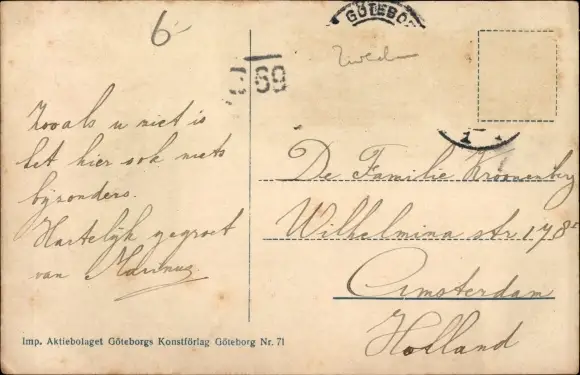 6-
GÖTEBOR
Zweden
69
1
Zooals u niet is
het hier ook niets
bijzonders.
Hartelijk gegroet
van Marinus
De Familie Kroonenberg
Wilhelmina str 178
Amsterdam
Holland
Imp. Aktiebolaget Göteborgs Konstförlag Göteborg Nr. 71